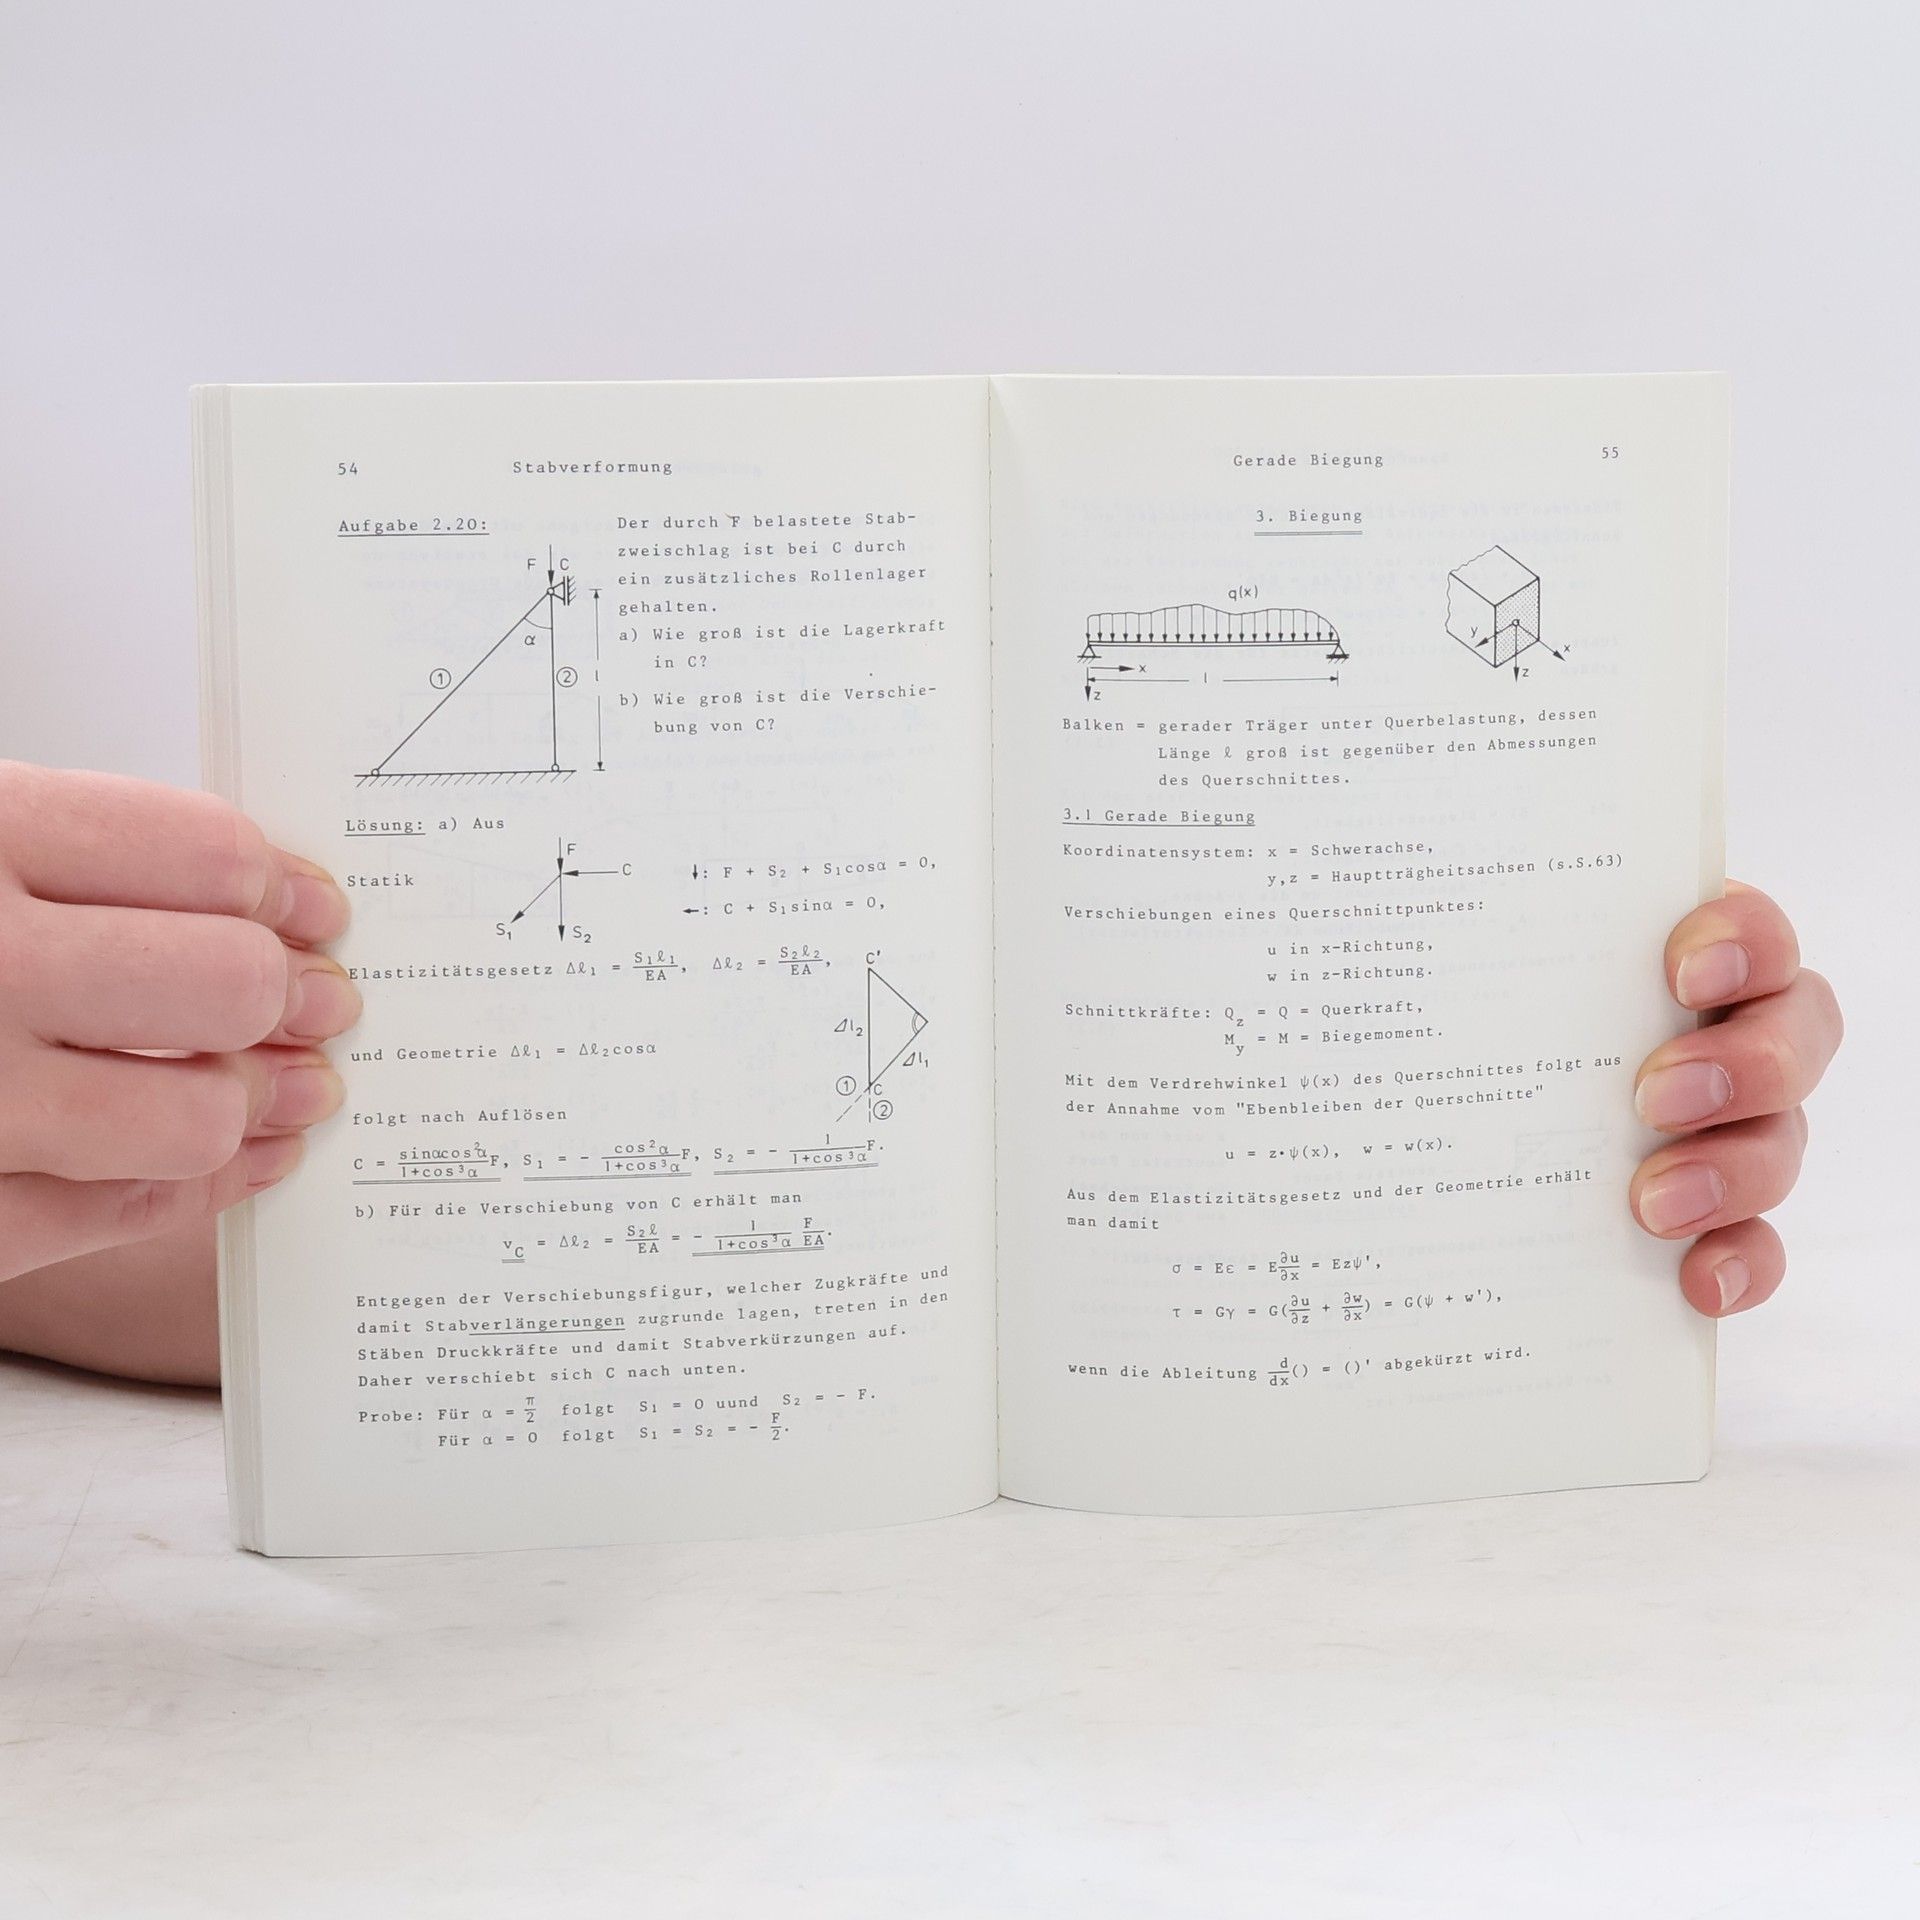 54 Stabverformung
Aufgabe 2.20:
F C
α
① ② l
Der durch F belastete Stab-
zweischlag ist bei C durch
ein zusätzliches Rollenlager
gehalten.
a) Wie groß ist die Lagerkraft
in C?
b) Wie groß ist die Verschie-
bung von C?
Lösung: a) Aus
Statik
F
C
S₁ S₂
↓: F + S₂ + S₁cosα = 0,
←: C + S₁sinα = 0,
Elastizitätsgesetz Δℓ₁ = S₁ℓ₁/EA, Δℓ₂ = S₂ℓ₂/EA,
und Geometrie Δℓ₁ = Δℓ₂cosα
C'
Δl₂
Δl₁
① C
②
folgt nach Auflösen
C = sinαcos²α/1+cos³α F, S₁ = - cos²α/1+cos³α F, S₂ = - 1/1+cos³α F.
b) Für die Verschiebung von C erhält man
v_C = Δℓ₂ = S₂ℓ/EA = - 1/1+cos³α F/EA.
Entgegen der Verschiebungsfigur, welcher Zugkräfte und
damit Stabverlängerungen zugrunde lagen, treten in den
Stäben Druckkräfte und damit Stabverkürzungen auf.
Daher verschiebt sich C nach unten.
Probe: Für α = π/2 folgt S₁ = 0 uund S₂ = - F.
Für α = 0 folgt S₁ = S₂ = - F/2.
Gerade Biegung 55
3. Biegung
q(x)
x
l
z
y
x
z
Balken = gerader Träger unter Querbelastung, dessen
Länge ℓ groß ist gegenüber den Abmessungen
des Querschnittes.
3.1 Gerade Biegung
Koordinatensystem: x = Schwerachse,
y,z = Hauptträgheitsachsen (s.S.63)
Verschiebungen eines Querschnittpunktes:
u in x-Richtung,
w in z-Richtung.
Schnittkräfte: Q_z = Q = Querkraft,
M_y = M = Biegemoment.
Mit dem Verdrehwinkel ψ(x) des Querschnittes folgt aus
der Annahme vom "Ebenbleiben der Querschnitte"
u = z·ψ(x), w = w(x).
Aus dem Elastizitätsgesetz und der Geometrie erhält
man damit
σ = Eε = E∂u/∂x = Ezψ',
τ = Gγ = G(∂u/∂z + ∂w/∂x) = G(ψ + w'),
wenn die Ableitung d/dx() = ()' abgekürzt wird.